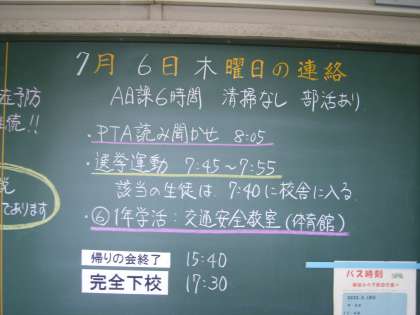 7月 6日 木曜日の連絡
AB課6時間 清掃なし 部活あり
・PTA読み聞かせ 8:05
・選挙運動 7:45～7:55
該当の生徒は 7:40に校舎に入る
・⑥1年学活：交通安全教室(体育館)
帰りの会終了 15:40
完全下校 17:30
予防
!!
であります
バス時刻